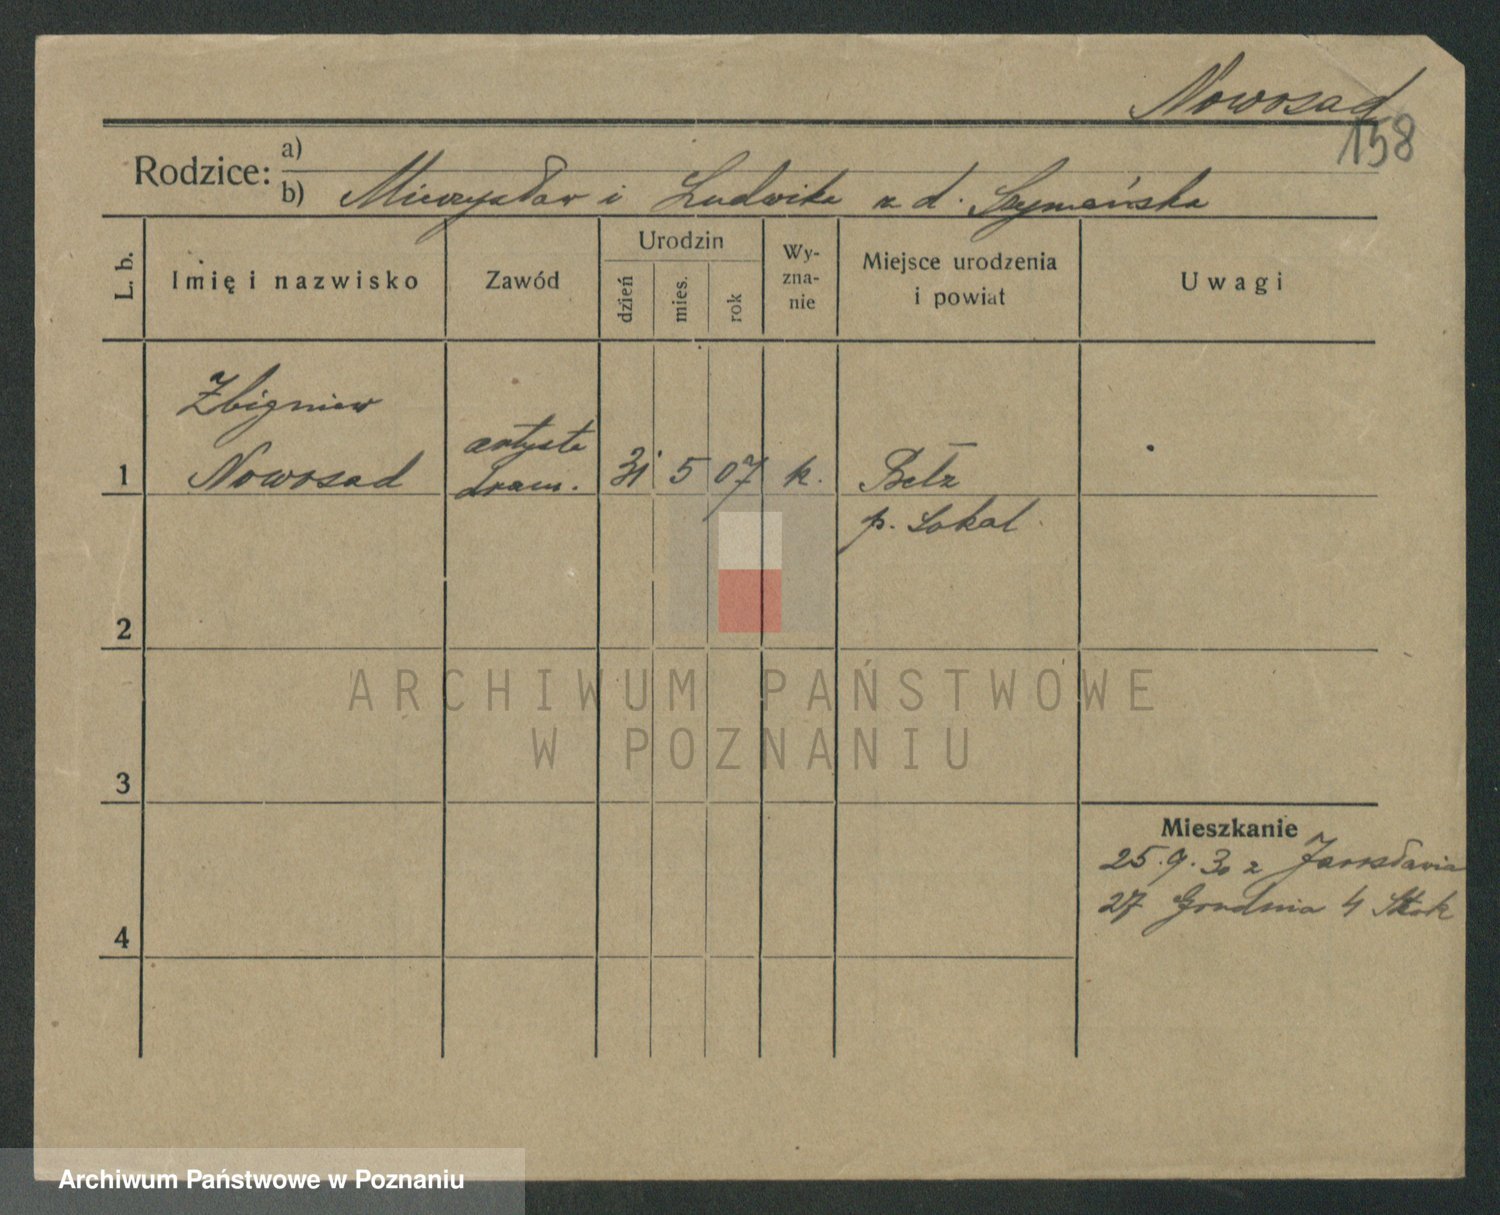 Nowosad
158
Rodzice: a)
b) Mieczysław i Ludwika z d. Szymańska
L. b.
Imię i nazwisko
Zawód
Urodzin
dzień
mies.
rok
Wy-
zna-
nie
Miejsce urodzenia
i powiat
Uwagi
Zbigniew
1 Nowosad
artysta
dram.
31 5 07 k. Bełz
p. Sokal
2
3
4
Mieszkanie
25.9.30 z Jarosławia
27 Grudnia 4
ARCHIWUM PAŃSTWOWE
W POZNANIU
Archiwum Państwowe w Poznaniu